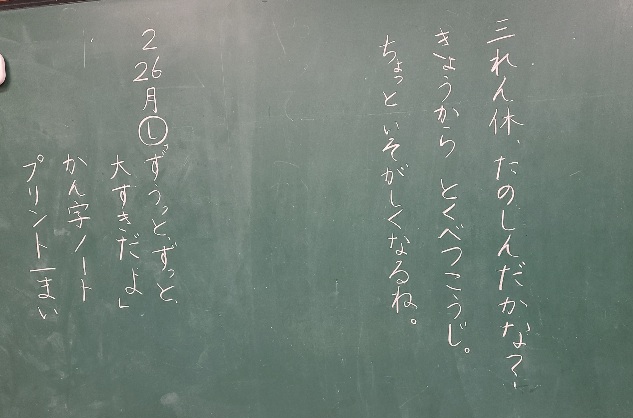 三れん休、たのしんだかな？
きょうから とくべつこうじ。
ちょっと いそがしくなるね。
2 26 月
Ⓛ「ずうっと、ずっと、
大すきだよ」
かん字ノート
プリント一まい